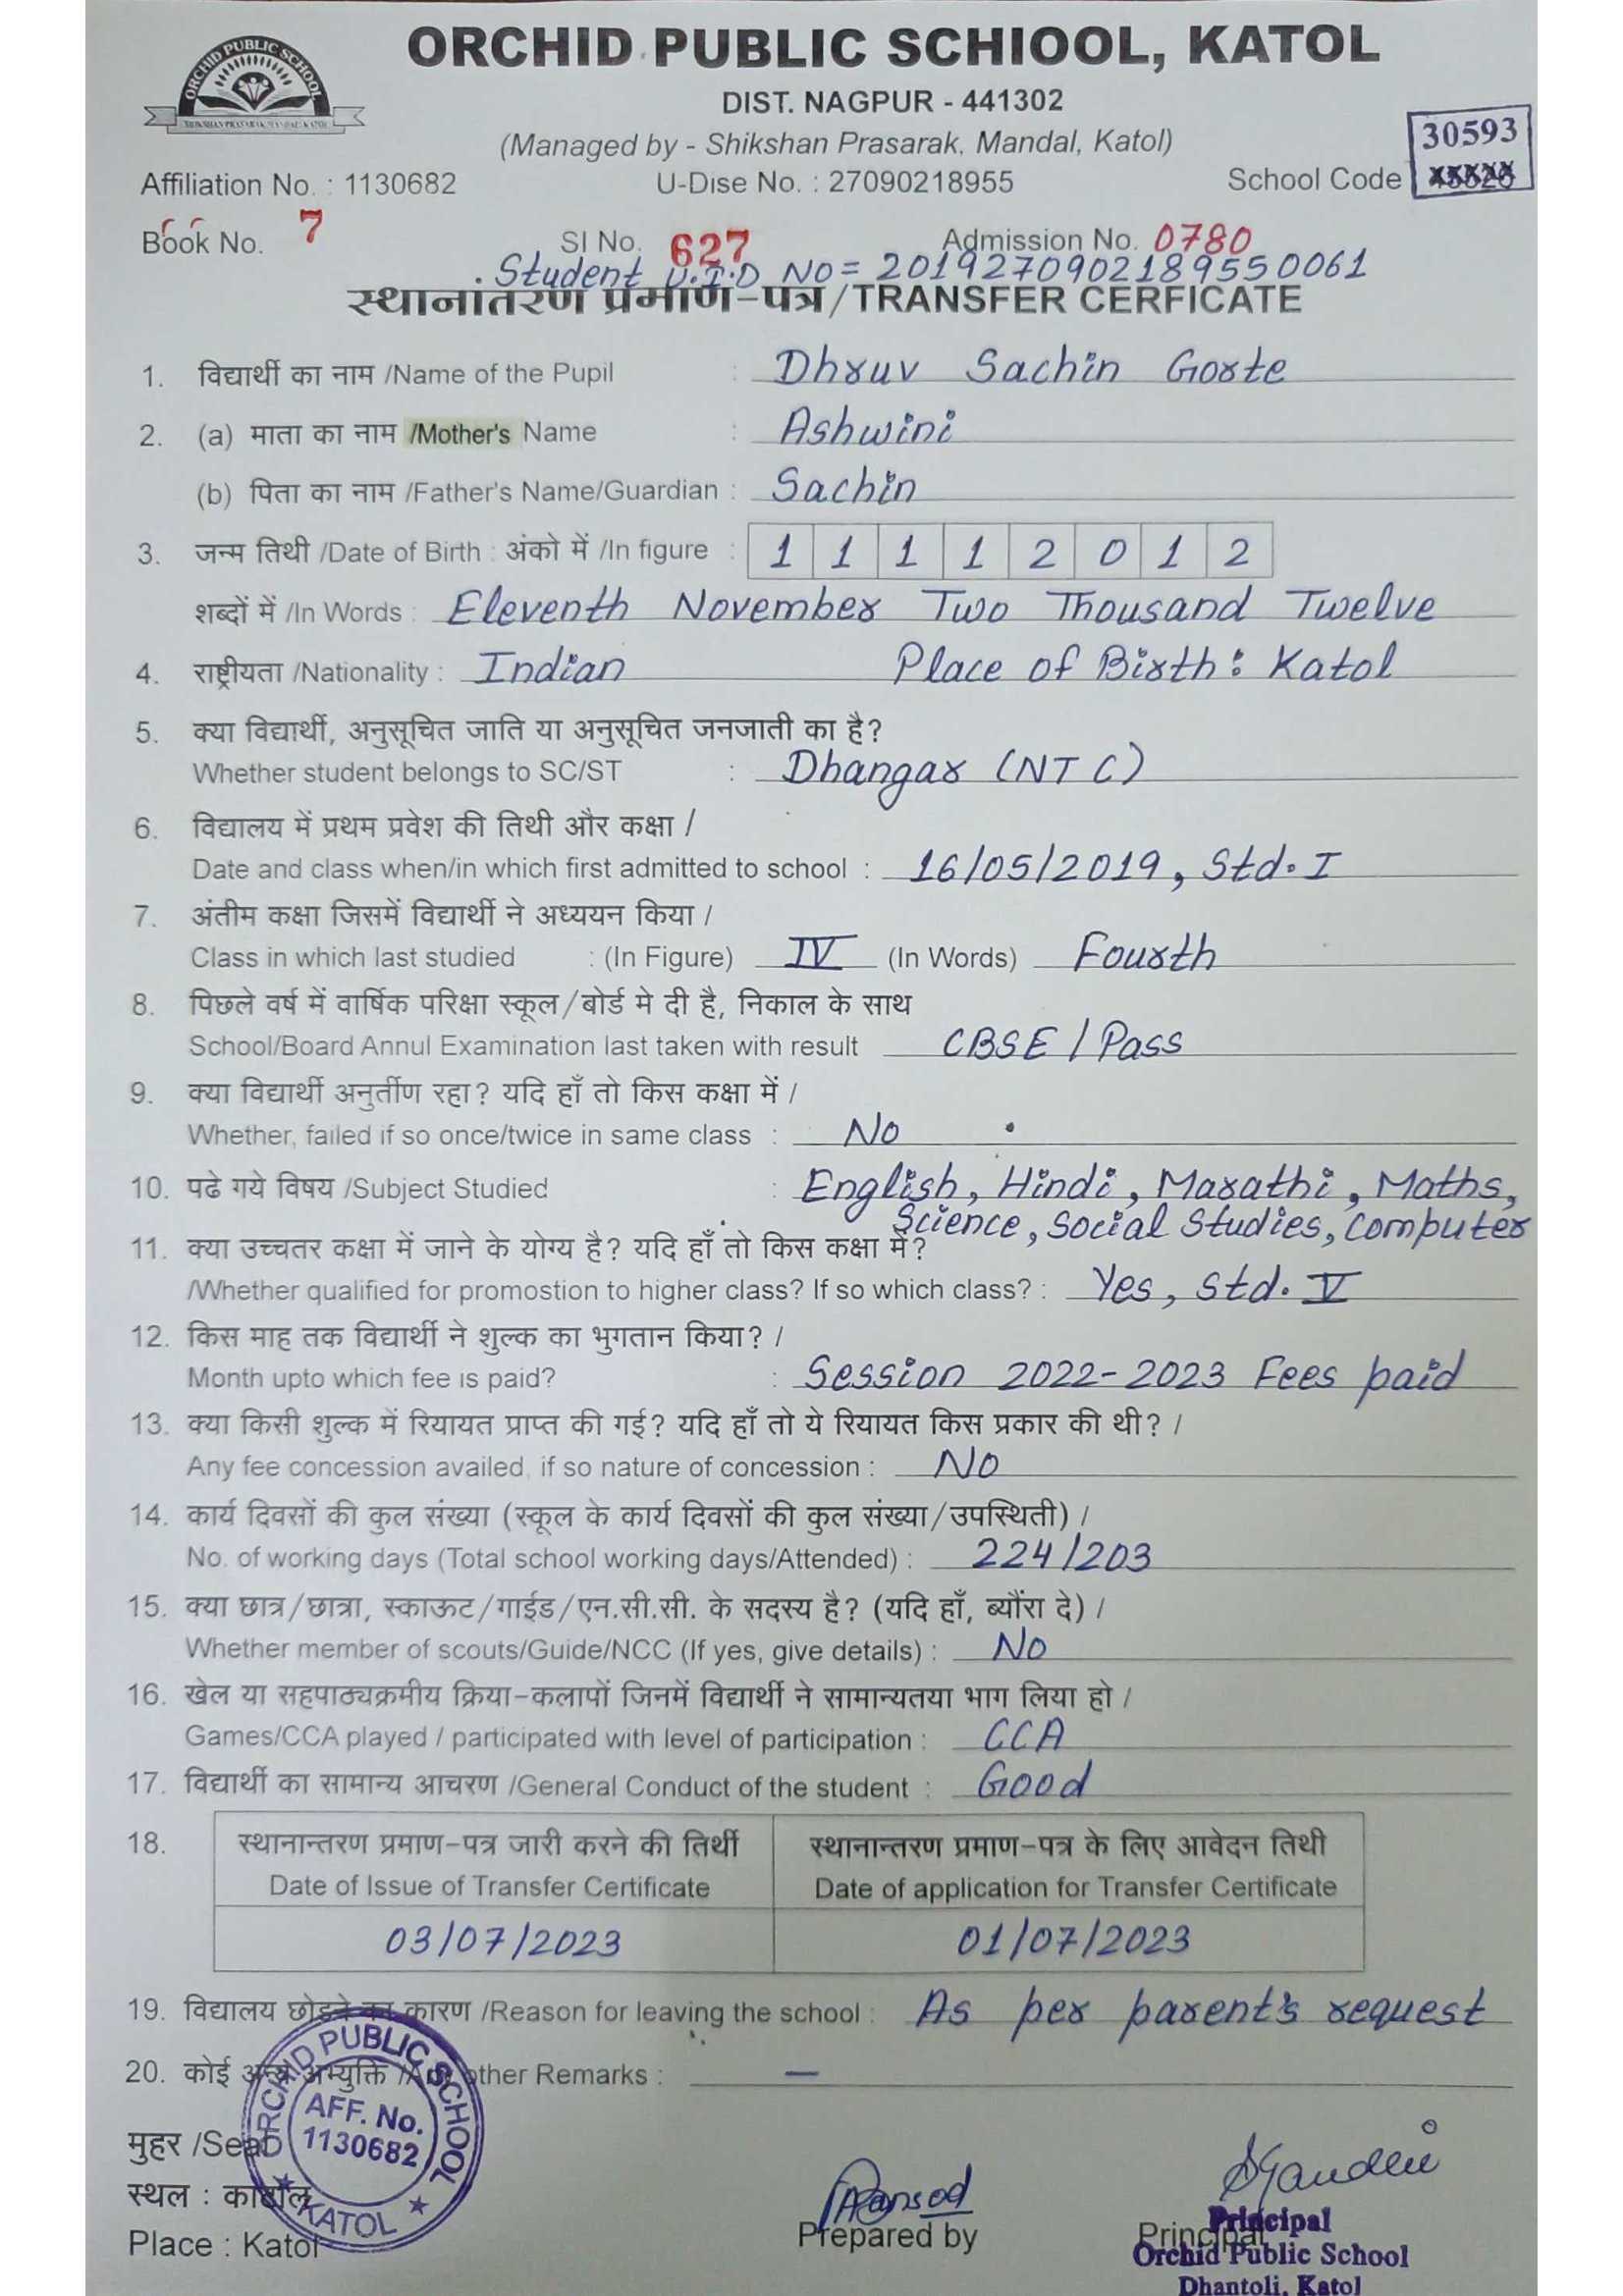 ORCHID PUBLIC SCHOOL
ORCHID PUBLIC SCHIOOL, KATOL
DIST. NAGPUR - 441302
(Managed by - Shikshan Prasarak, Mandal, Katol)
30593
Affiliation No. : 1130682 U-Dise No. : 27090218955 School Code
Book No. 7 SI No. 627 Admission No. 0780
Student U.I.D No = 2019270902189550061
स्थानांतरण प्रमाण-पत्र/TRANSFER CERFICATE
1. विद्यार्थी का नाम /Name of the Pupil : Dhruv Sachin Gorte
2. (a) माता का नाम /Mother's Name : Ashwini
(b) पिता का नाम /Father's Name/Guardian : Sachin
3. जन्म तिथी /Date of Birth : अंको में /In figure : 1 1 1 1 2 0 1 2
शब्दों में /In Words : Eleventh November Two Thousand Twelve
4. राष्ट्रीयता /Nationality : Indian Place of Birth : Katol
5. क्या विद्यार्थी, अनुसूचित जाति या अनुसूचित जनजाती का है?
Whether student belongs to SC/ST : Dhangar (NT C)
6. विद्यालय में प्रथम प्रवेश की तिथी और कक्षा /
Date and class when/in which first admitted to school : 16/05/2019, Std. I
7. अंतीम कक्षा जिसमें विद्यार्थी ने अध्ययन किया /
Class in which last studied : (In Figure) IV (In Words) Fourth
8. पिछले वर्ष में वार्षिक परिक्षा स्कूल/बोर्ड मे दी है, निकाल के साथ
School/Board Annul Examination last taken with result CBSE / Pass
9. क्या विद्यार्थी अनुर्तीण रहा? यदि हाँ तो किस कक्षा में /
Whether, failed if so once/twice in same class : No
10. पढे गये विषय /Subject Studied : English, Hindi, Marathi, Maths,
Science, Social Studies, Computer
11. क्या उच्चतर कक्षा में जाने के योग्य है? यदि हाँ तो किस कक्षा में?
/Whether qualified for promostion to higher class? If so which class? : Yes, Std. V
12. किस माह तक विद्यार्थी ने शुल्क का भुगतान किया? /
Month upto which fee is paid? : Session 2022-2023 Fees paid
13. क्या किसी शुल्क में रियायत प्राप्त की गई? यदि हाँ तो ये रियायत किस प्रकार की थी? /
Any fee concession availed, if so nature of concession : No
14. कार्य दिवसों की कुल संख्या (स्कूल के कार्य दिवसों की कुल संख्या/उपस्थिती) /
No. of working days (Total school working days/Attended) : 224/203
15. क्या छात्र/छात्रा, स्काऊट/गाईड/एन.सी.सी. के सदस्य है? (यदि हाँ, ब्यौंरा दे) /
Whether member of scouts/Guide/NCC (If yes, give details) : No
16. खेल या सहपाठ्यक्रमीय क्रिया-कलापों जिनमें विद्यार्थी ने सामान्यतया भाग लिया हो /
Games/CCA played / participated with level of participation : CCA
17. विद्यार्थी का सामान्य आचरण /General Conduct of the student : Good
18. स्थानान्तरण प्रमाण-पत्र जारी करने की तिर्थी स्थानान्तरण प्रमाण-पत्र के लिए आवेदन तिथी
Date of Issue of Transfer Certificate Date of application for Transfer Certificate
03/07/2023 01/07/2023
19. विद्यालय छोडने का कारण /Reason for leaving the school : As per parent's request
20. कोई अन्य अभ्युक्ति /Any other Remarks : —
ORCHID PUBLIC SCHOOL
AFF. No.
1130682
KATOL
मुहर /Seal
स्थल : काटोल
Place : Katol
Prepared by Principal
Principal
Orchid Public School
Dhantoli, Katol